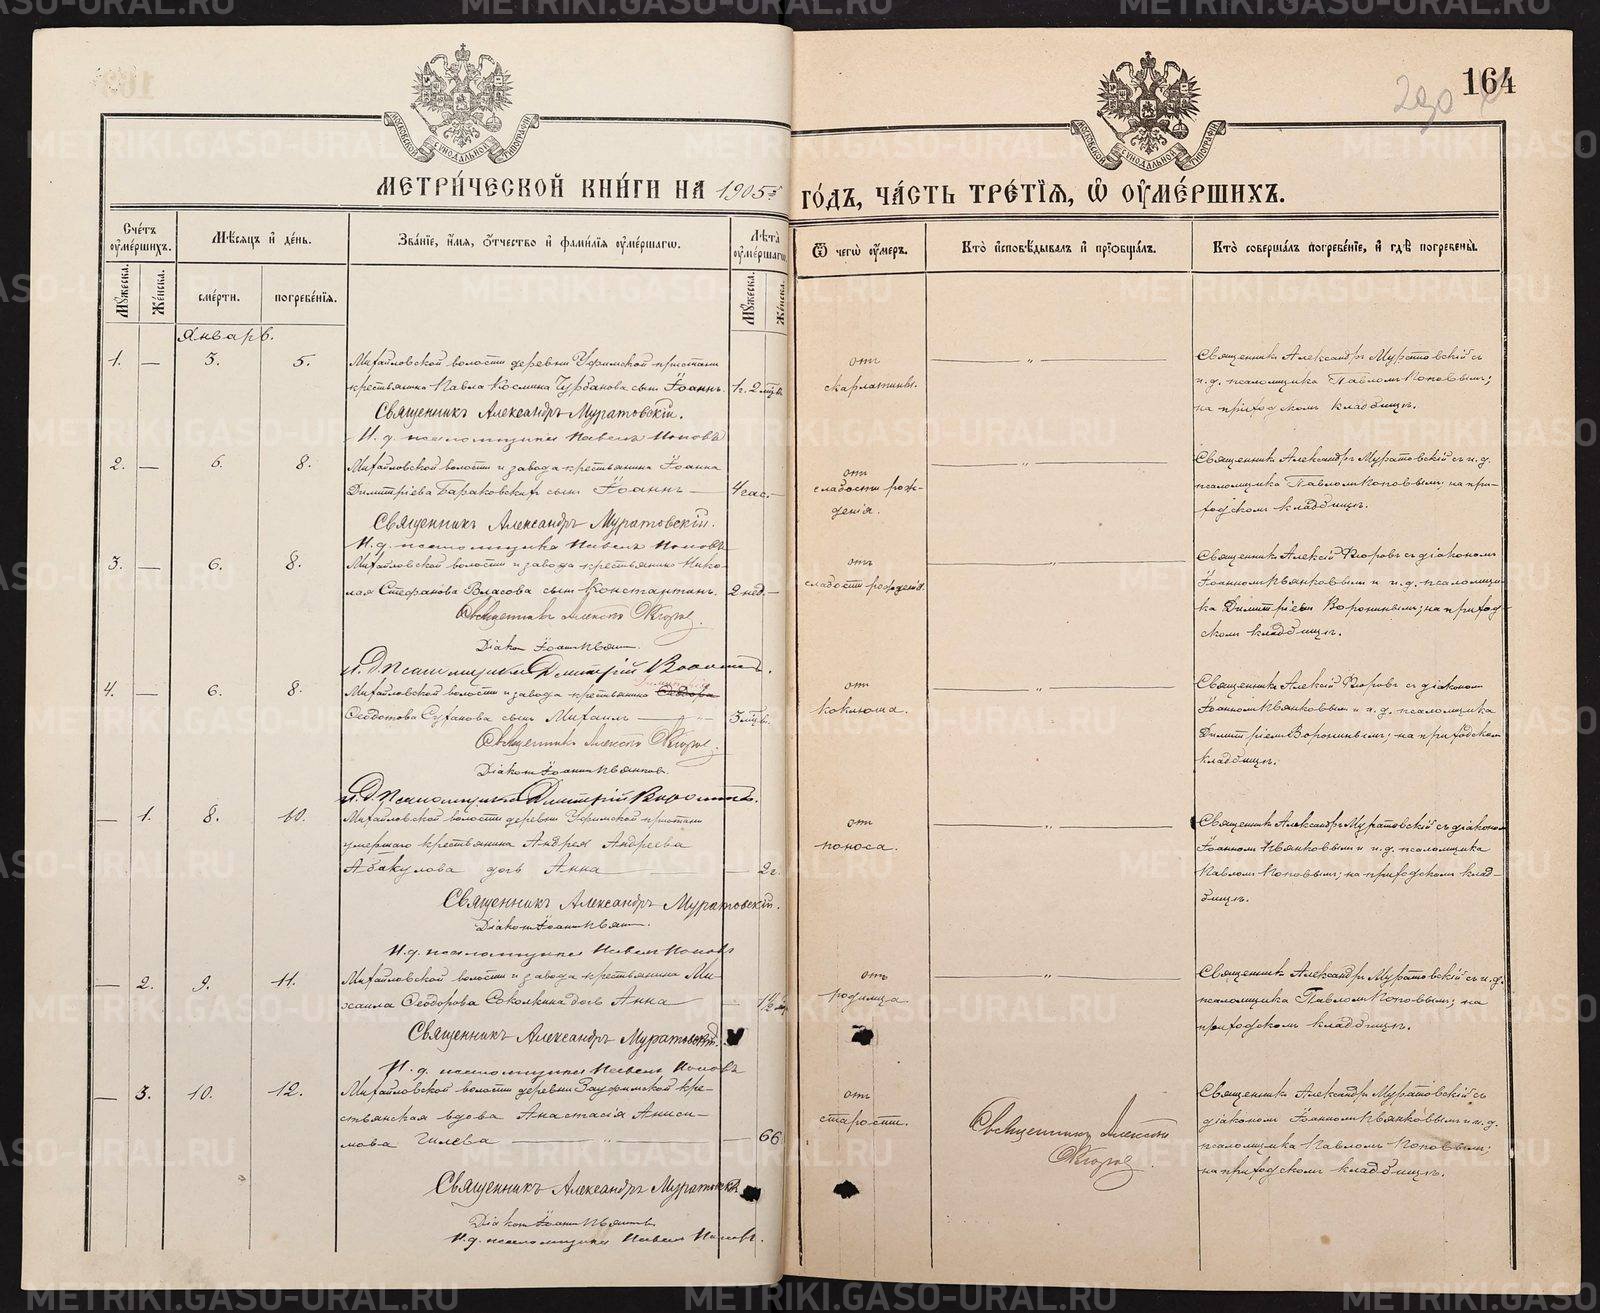 164
290
МОСКОВСКОЙ СѴНОДАЛЬНОЙ ТИПОГРАФІИ
МОСКОВСКОЙ СѴНОДАЛЬНОЙ ТИПОГРАФІИ
МЕТРИ́ЧЕСКОЙ КНИ́ГИ НА 1905й ГО́ДЪ, ЧА́СТЬ ТРЕ́ТІѦ, Ѡ҆ ОУ҆МЕ́РШИХЪ.
Сче́тъ оу҆ме́ршихъ.
Мꙋ́жеска.
Же́нска.
Мѣ́сѧцъ и҆ де́нь.
сме́рти.
погребе́нїѧ.
Зва́нїе, и҆́мѧ, ѻ҆́тчество и҆ фамі́лїѧ оу҆ме́ршагѡ.
Лѣ́та оу҆ме́ршагѡ.
Мꙋ́жеска.
Же́нска.
Ѿ чегѡ̀ оу҆́меръ.
Кто̀ и҆сповѣ́дывалъ и҆ прїѡбща́лъ.
Кто̀ соверша́лъ погребе́нїе, и҆ гдѣ̀ погребены̀.
Январь.
1. — 3. 5.
Михайловской волости деревни Уфимской пристани
крестьянина Павла Космина Чурбанова сынъ Іоаннъ. 1г. 2 мѣс.
Священникъ Александръ Муратовскій.
И. д. псаломщика Павелъ Поповъ
отъ
скарлатины.
— „ —
Священникъ Александръ Муратовскій съ
и. д. псаломщика Павломъ Поповымъ;
на приходскомъ кладбищѣ.
2. — 6. 8.
Михайловской волости и завода крестьянина Іоанна
Димитріева Бараковскихъ сынъ Іоаннъ — 4 час. —
Священникъ Александръ Муратовскій.
И. д. псаломщика Павелъ Поповъ
отъ
слабости рож-
денія.
— „ —
Священникъ Александръ Муратовскій съ и. д.
псаломщика Павломъ Поповымъ; на при-
ходскомъ кладбищѣ.
3. — 6. 8.
Михайловской волости и завода крестьянина Нико-
лая Стефанова Власова сынъ Константинъ. 2 нед. —
Священникъ Алексій Ѳлоровъ.
Діаконъ Іоаннъ
И. д. псаломщика Димитрій Воронинъ.
отъ
слабости рожденія.
— „ —
Священникъ Алексій Ѳлоровъ съ діакономъ
Іоанномъ Ивянковымъ и и. д. псаломщи-
ка Димитріемъ Воронинымъ; на приход-
скомъ кладбищѣ.
4. — 6. 8.
Михайловской волости и завода крестьянина
Ѳеодотова Суханова сынъ Михаилъ — „ — 3 мѣс.
Священникъ Алексій Ѳлоровъ.
Діаконъ Іоаннъ Ивянковъ.
И. д. псаломщика Димитрій Воронинъ.
отъ
коклюша.
— „ —
Священникъ Алексій Ѳлоровъ съ діакономъ
Іоанномъ Ивянковымъ и и. д. псаломщика
Димитріемъ Воронинымъ; на приходскомъ
кладбищѣ.
— 1. 8. 10.
Михайловской волости деревни Уфимской пристани
умершаго крестьянина Андрея Андреева
Абакулова дочь Анна — — 2 г.
Священникъ Александръ Муратовскій.
Діаконъ Іоаннъ
И. д. псаломщика Павелъ Поповъ
отъ
поноса.
— „ —
Священникъ Александръ Муратовскій съ діакономъ
Іоанномъ Ивянковымъ и и. д. псаломщика
Павломъ Поповымъ; на приходскомъ клад-
бищѣ.
— 2. 9. 11.
Михайловской волости и завода крестьянина Ми-
хаила Ѳеодорова Соколкина дочь Анна — — 1½ мѣс.
Священникъ Александръ Муратовскій.
И. д. псаломщика Павелъ Поповъ
отъ
родимца.
— „ —
Священникъ Александръ Муратовскій съ и. д.
псаломщика Павломъ Поповымъ; на
приходскомъ кладбищѣ.
— 3. 10. 12.
Михайловской волости деревни Зауфимской кре-
стьянская вдова Анастасія Аниси-
мова Гилева — „ — — 66
Священникъ Александръ Муратовскій
Діаконъ Іоаннъ
И. д. псаломщика Павелъ Поповъ.
отъ
старости.
Священникъ Алексій
Ѳлоровъ.
Священникъ Александръ Муратовскій съ
діакономъ Іоанномъ Ивянковымъ и и. д.
псаломщика Павломъ Поповымъ;
на приходскомъ кладбищѣ.
METRIKI.GASO-URAL.RU